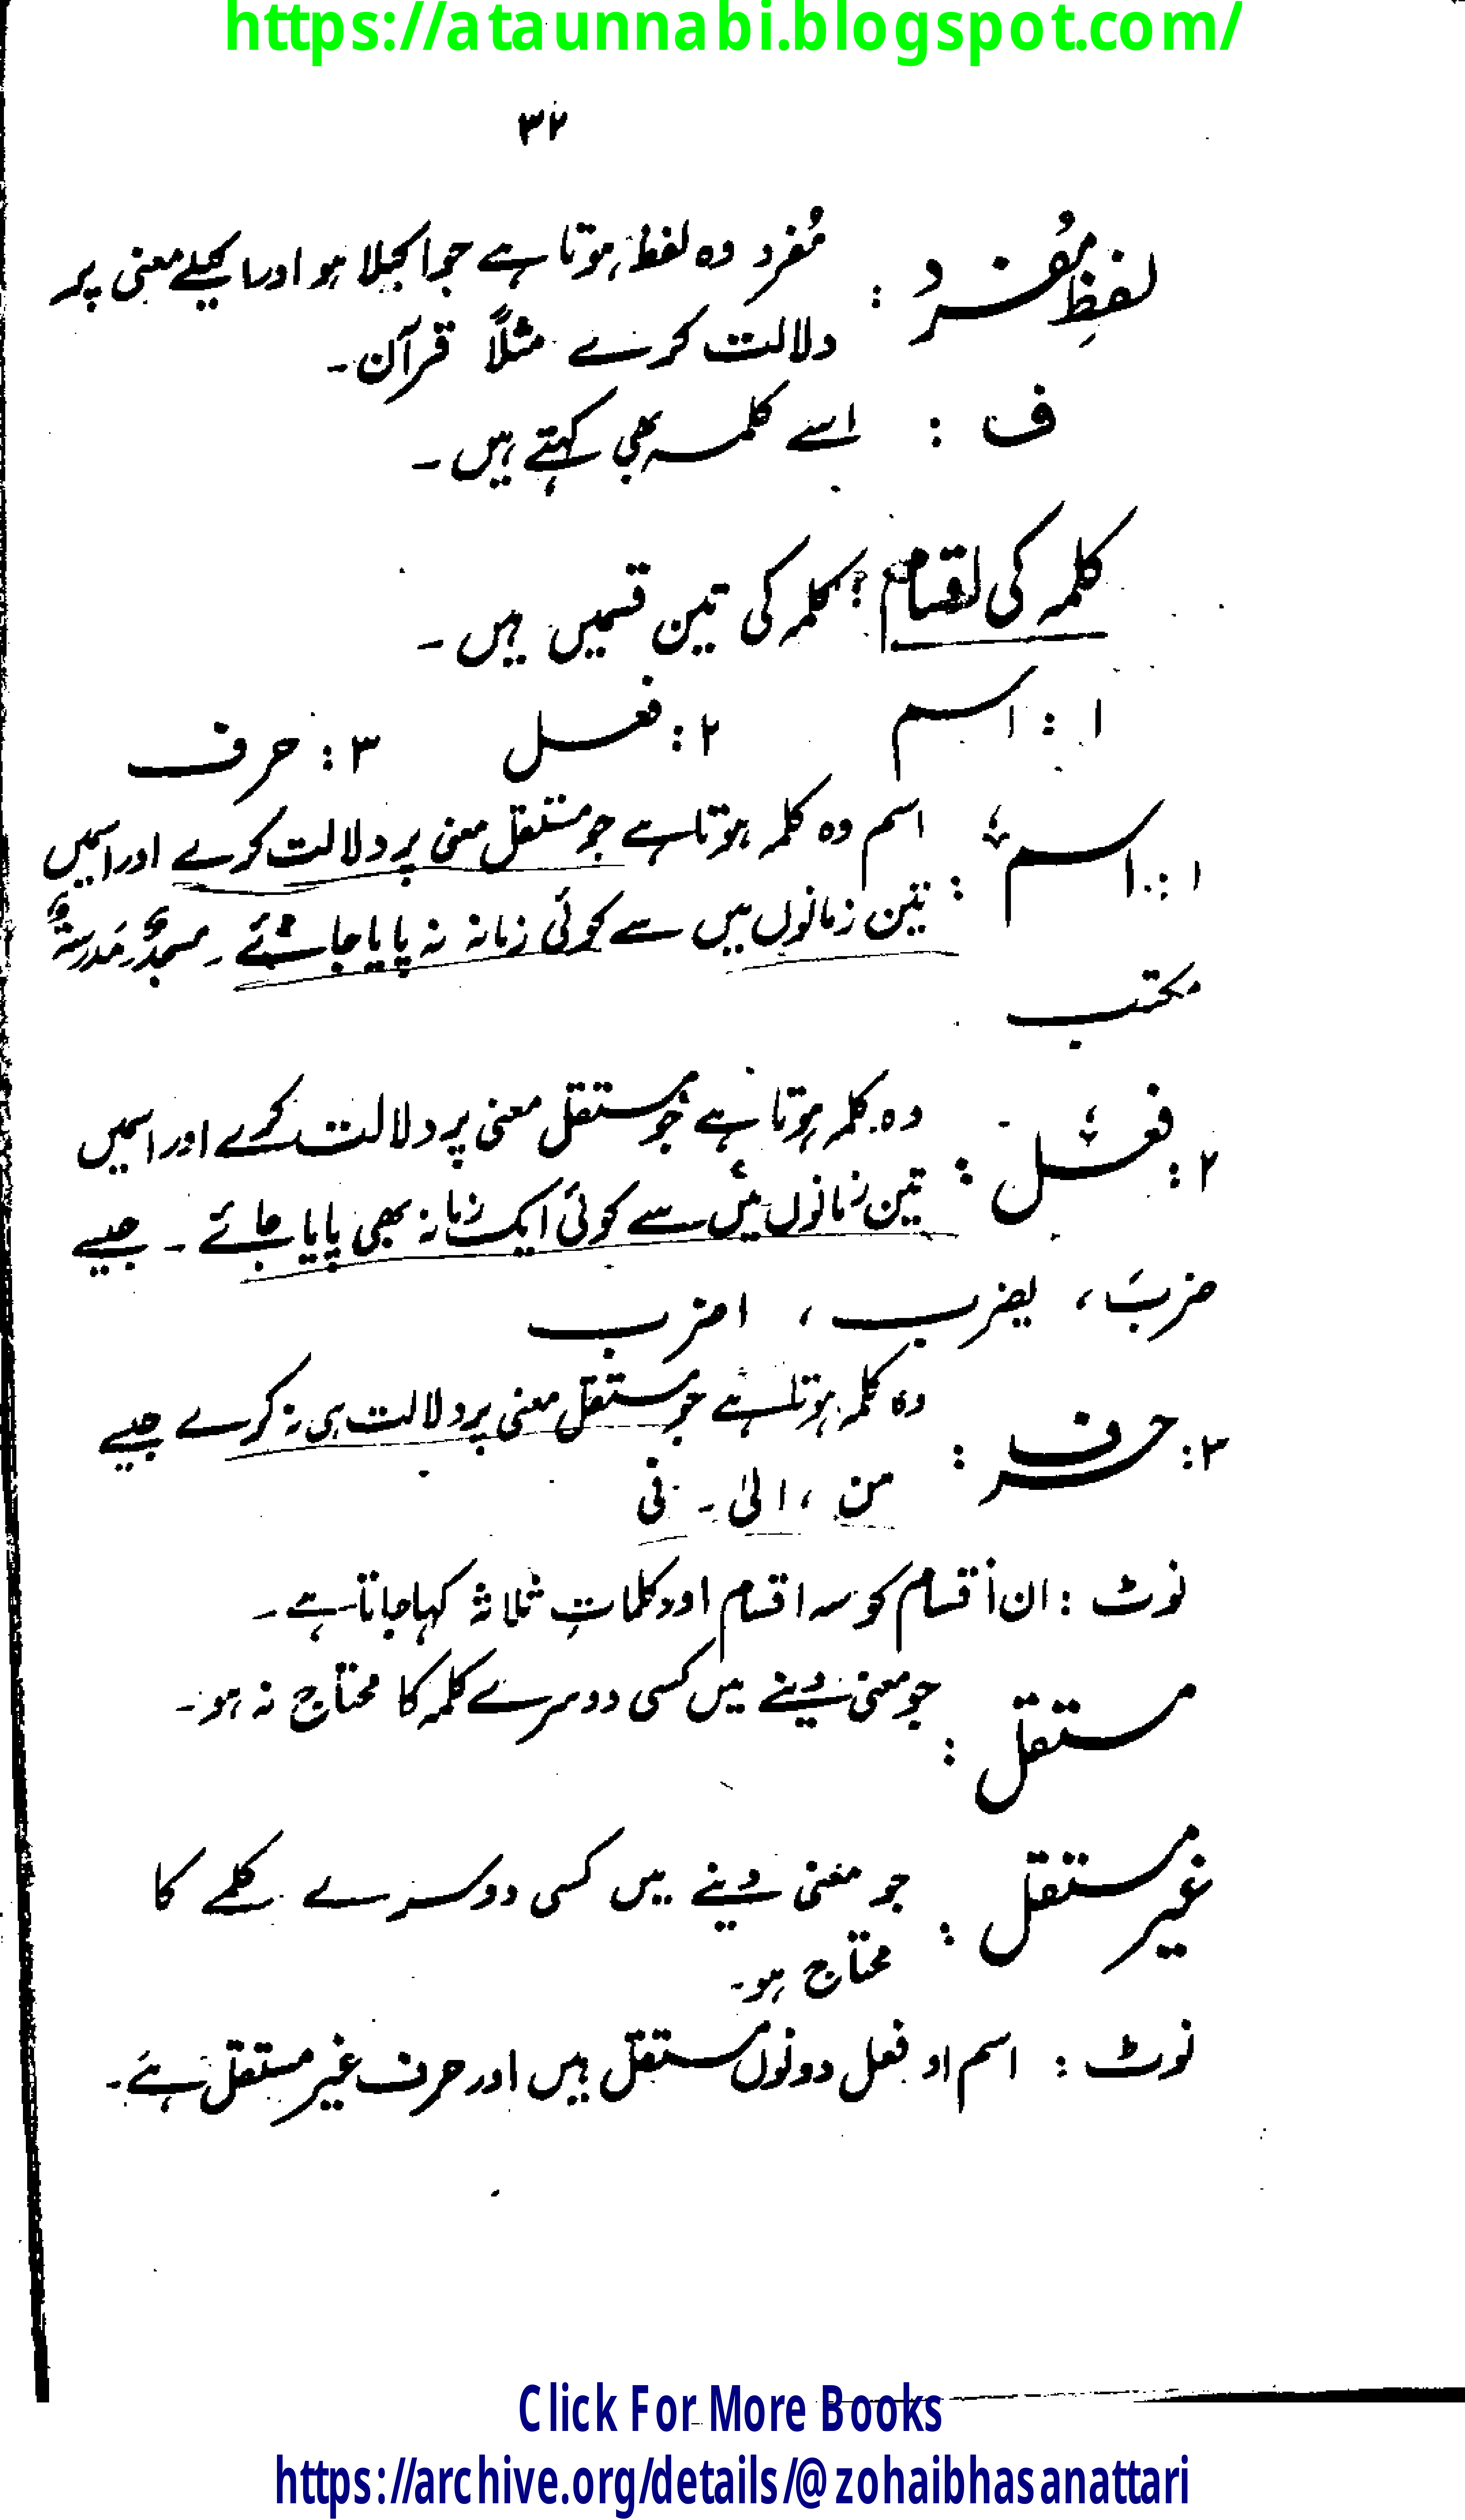 https://ataunnabi.blogspot.com/
۳۲
لفظِ مُفرد : مُفرد وہ لفظ ہوتا ہے جو اکیلا ہو اور اکیلے معنی پر
دلالت کرے مثلاً قرآن۔
ف : اسے کلمہ بھی کہتے ہیں۔
کلمہ کی تقسام : کلمہ کی تین قسمیں ہیں۔
۱ : اسم ۲ : فعل ۳ : حرف
۱ : اسم : اسم وہ کلمہ ہوتا ہے جو مستقل معنی پر دلالت کرے اور اسمیں
تین زمانوں میں سے کوئی زمانہ نہ پایا جائے ۔ مسجدٌ ۔ مَدرسۃٌ
مکتب
۲ : فعل : وہ کلمہ ہوتا ہے جو مستقل معنی پر دلالت کرے اور اسمیں
تین زمانوں میں سے کوئی ایک زمانہ بھی پایا جائے ۔ جیسے
ضربَ ، یضرب ، اضرب
۳ : حرف : وہ کلمہ ہوتا ہے جو مستقل معنی پر دلالت ہی نہ کرے جیسے
من ، الیٰ ۔ فی
نوٹ : ان أقسام کو سہ اقسام اور کلماتِ ثلاثہ کہا جاتا ہے ۔
مستقل : جو معنی دینے میں کسی دوسرے کلمہ کا محتاج نہ ہو۔
غیر مستقل : جو معنی دینے میں کسی دوسرے کلمے کا
محتاج ہو۔
نوٹ : اسم او فعل دونوں مستقل ہیں اور حرف غیر مستقل ہے۔
Click For More Books
https://archive.org/details/@zohaibhasanattari